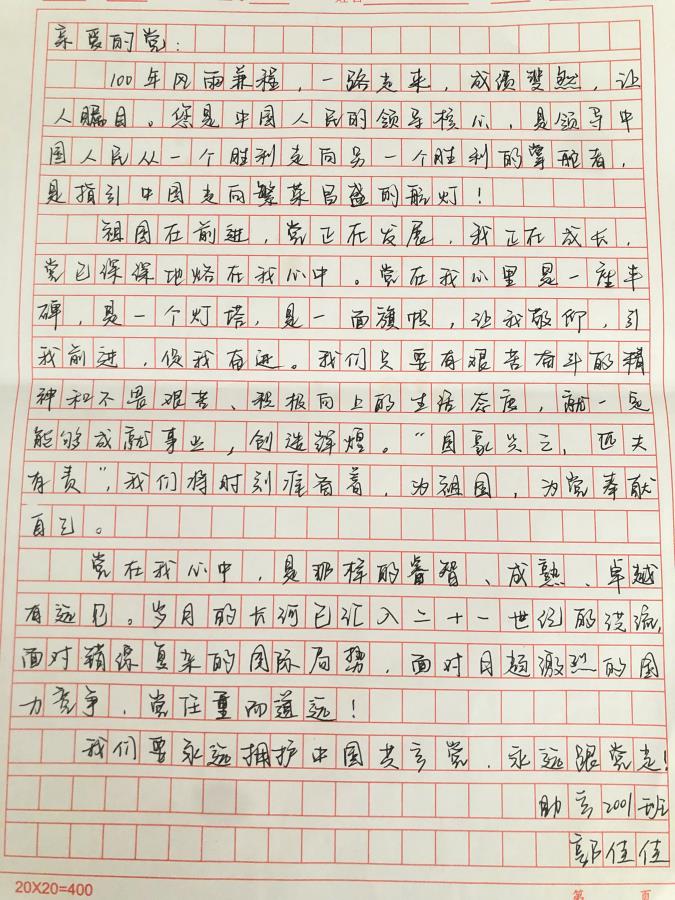 亲爱的党：
100年风雨兼程，一路走来，成绩斐然，让
人瞩目。您是中国人民的领导核心，是领导中
国人民从一个胜利走向另一个胜利的掌舵者，
是指引中国走向繁荣昌盛的航灯！
祖国在前进，党正在发展，我正在成长，
党已深深地烙在我心中。党在我心里是一座丰
碑，是一个灯塔，是一面旗帜，让我敬仰，引
我前进，促我奋进。我们只要有艰苦奋斗的精
神和不畏艰苦、积极向上的生活态度，就一定
能够成就事业，创造辉煌。“国家兴亡，匹夫
有责”，我们将时刻准备着，为祖国，为党奉献
自己。
党在我心中，是那样的睿智、成熟、卓越
有远见。岁月的长河已汇入二十一世纪的洪流，
面对错综复杂的国际局势，面对日趋激烈的国
力竞争，党任重而道远！
我们要永远拥护中国共产党，永远跟党走！
助产2001班
郭佳佳
20X20=400
第 页